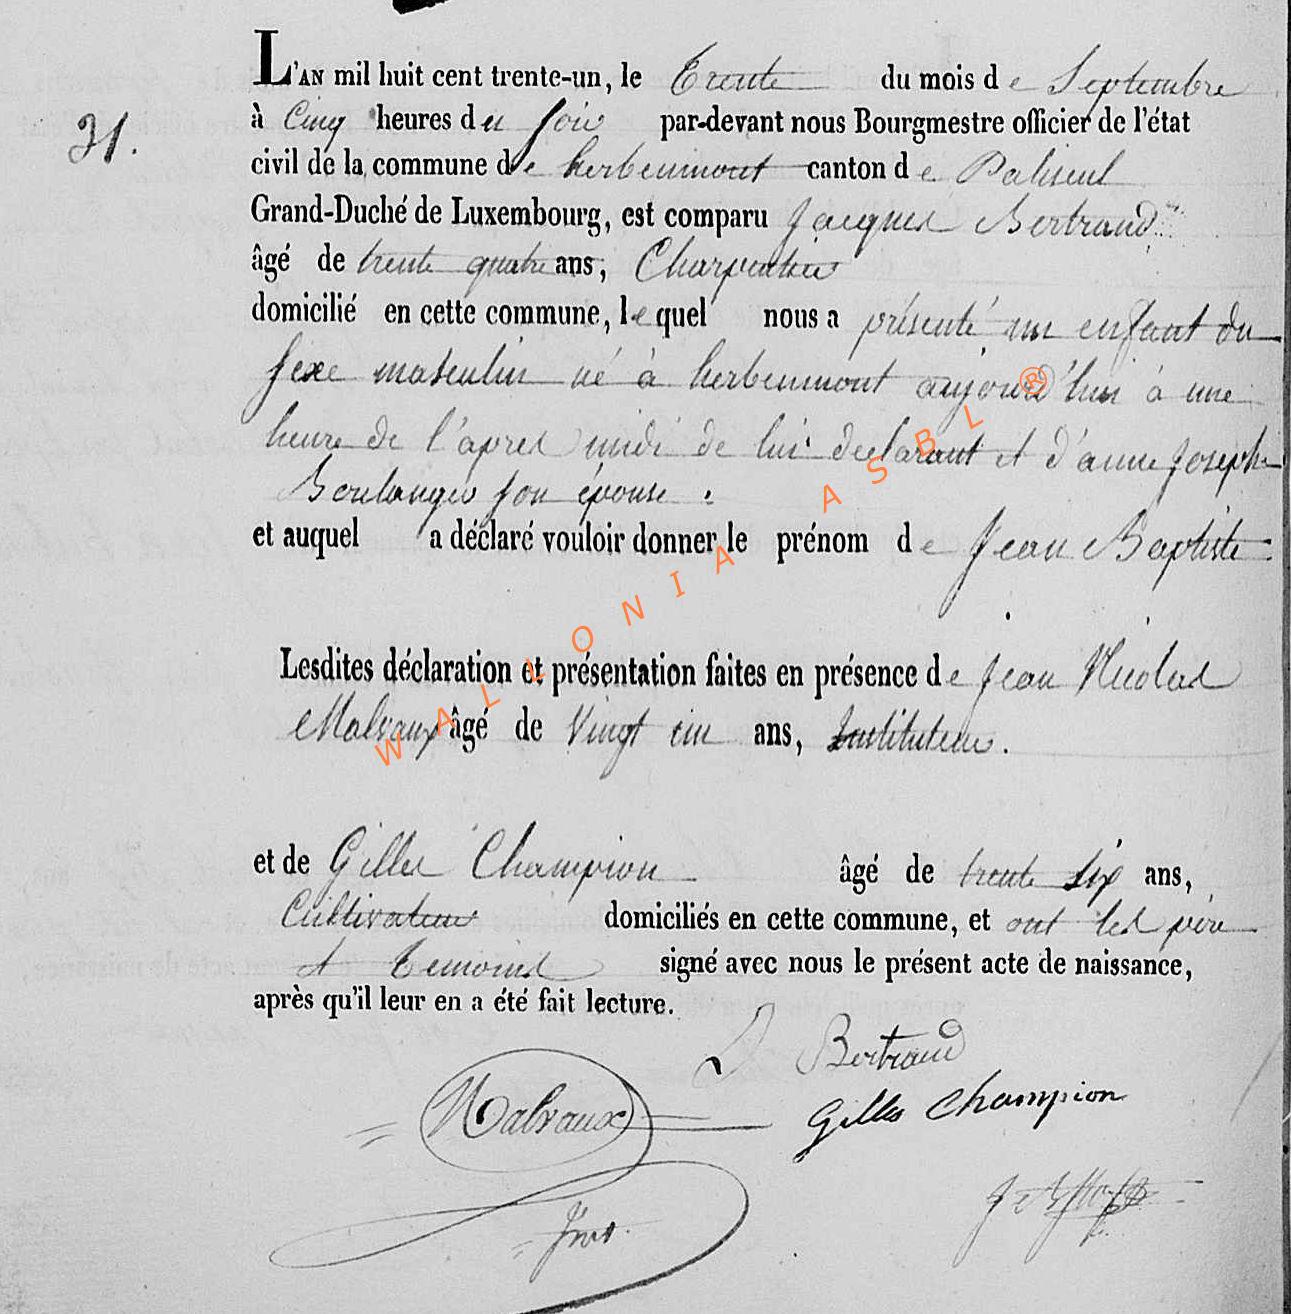 L'AN mil huit cent trente-un, le Trente du mois de Septembre
31.
à Cinq heures du soir par-devant nous Bourgmestre officier de l'état
civil de la commune de herbeumont canton de Paliseul
Grand-Duché de Luxembourg, est comparu Jacques Bertrand
âgé de trente quatre ans, Charpentier
domicilié en cette commune, lequel nous a présenté un enfant du
sexe masculin né à herbeumont aujourd'hui à une
heure de l'apres midi de lui declarant et d'anne Josephe
Boulanger son épouse.
et auquel a déclaré vouloir donner le prénom de Jean Baptiste
Lesdites déclaration et présentation faites en présence de Jean Nicolas
Malvaux âgé de Vingt cin ans, Instituteur.
et de Gilles Champion âgé de trente six ans,
Cultivateur domiciliés en cette commune, et ont les père
et Temoins signé avec nous le présent acte de naissance,
après qu'il leur en a été fait lecture.
J Bertrand
Malvaux
Gilles Champion
WALLONIA ASBL ®